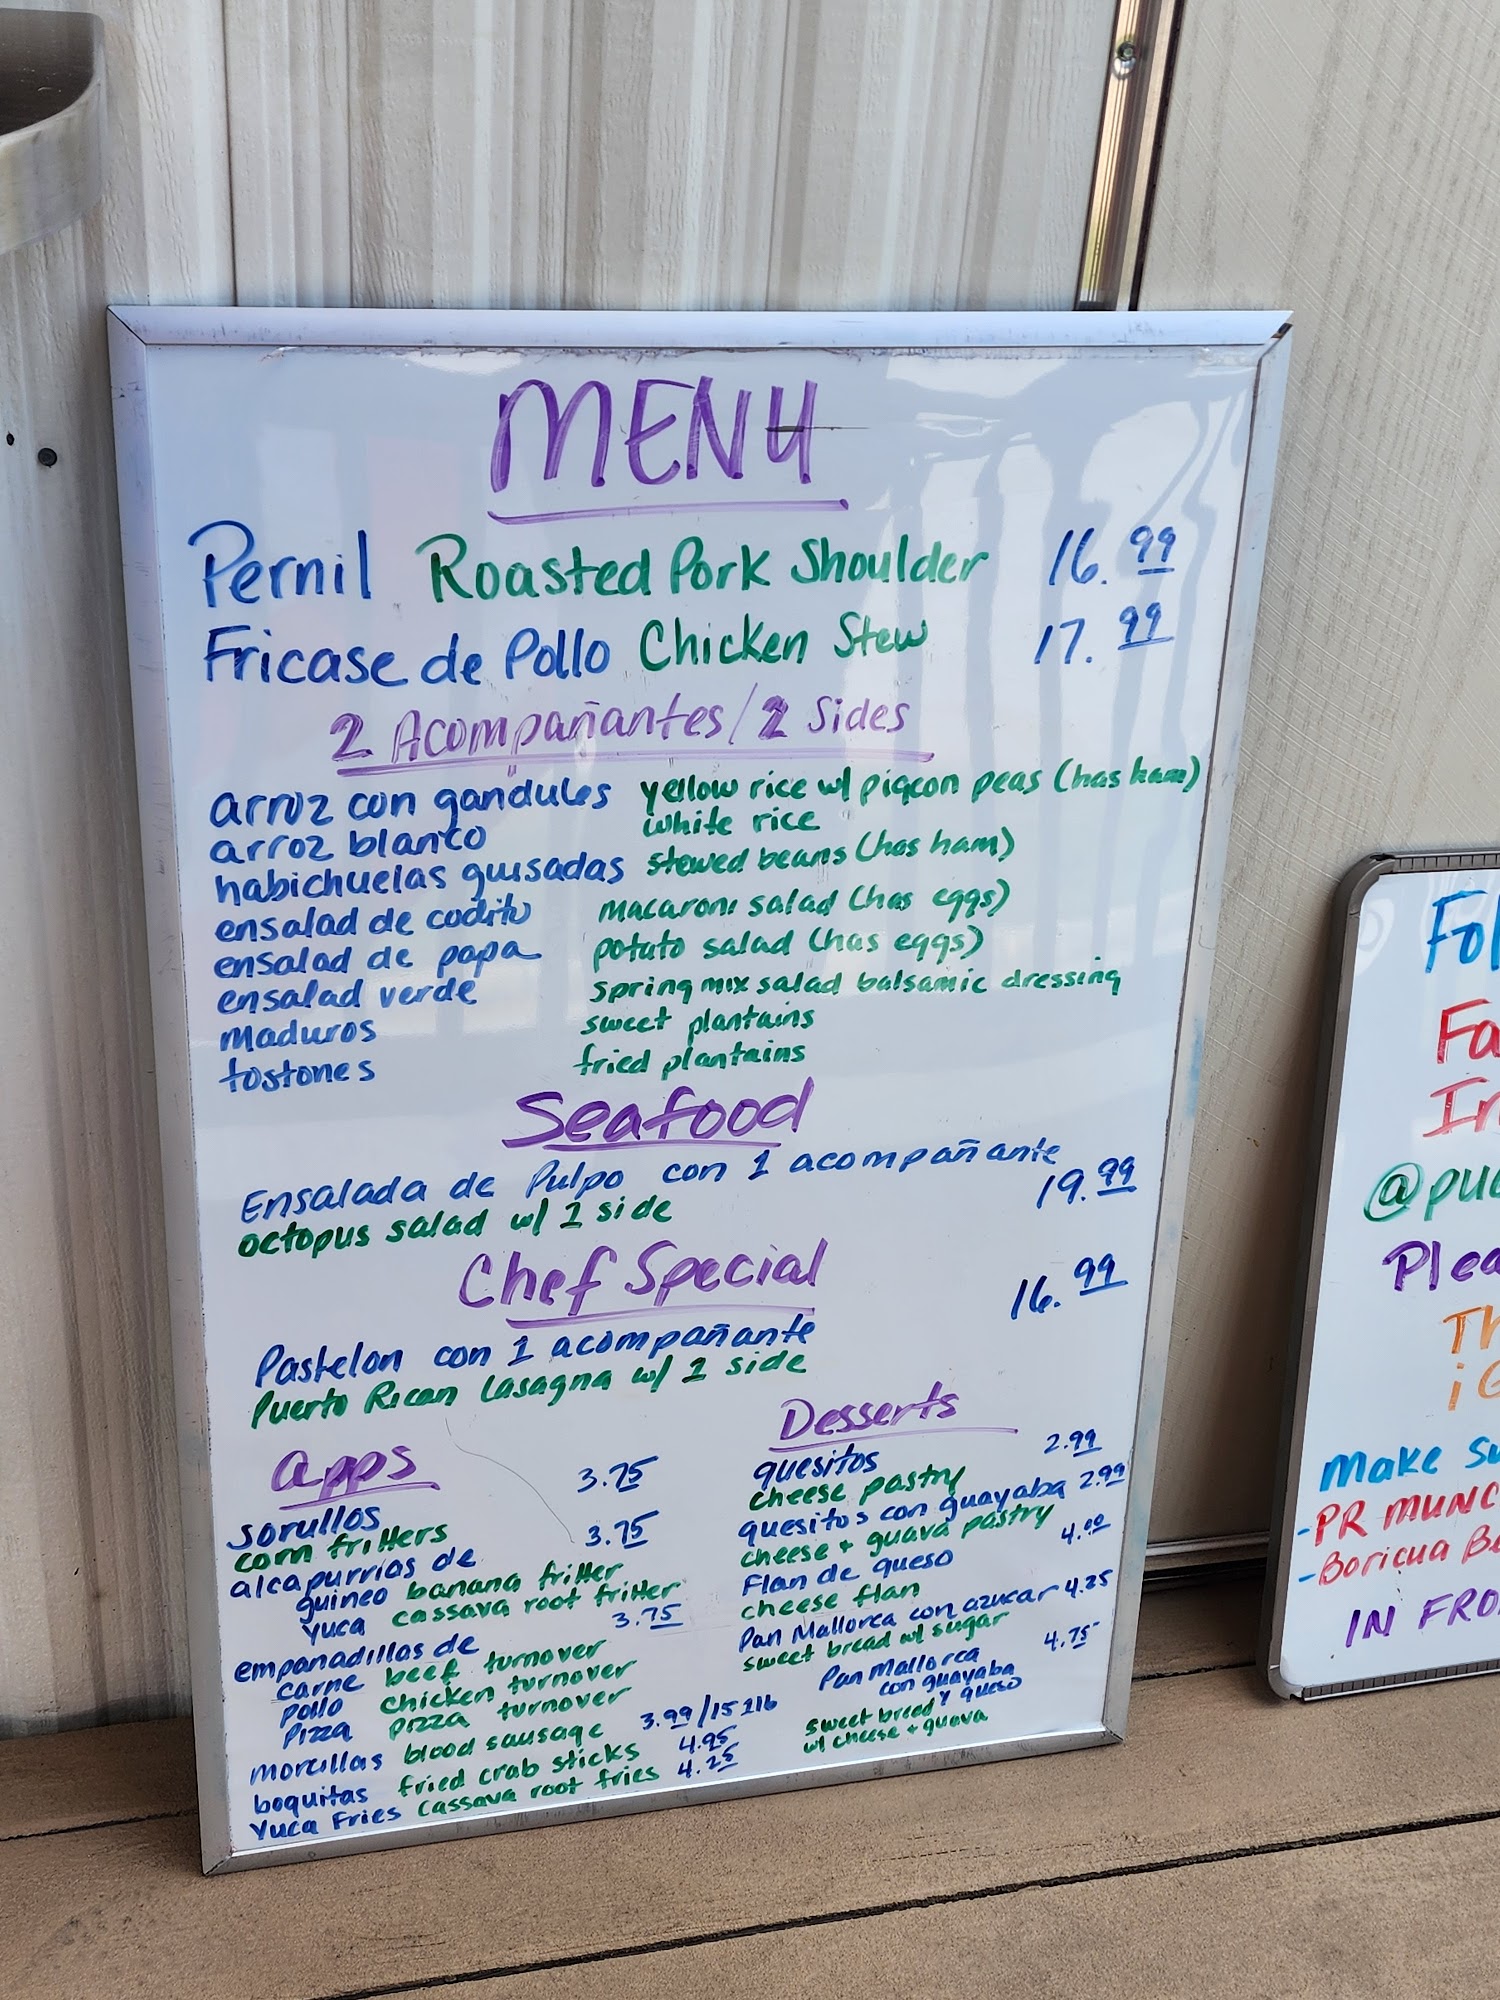 MENU
Pernil Roasted Pork Shoulder 16.99
Fricase de Pollo Chicken Stew 17.99
2 Acompañantes/2 Sides
arroz con gandules yellow rice w/ pigeon peas (has ham)
arroz blanco white rice
habichuelas guisadas stewed beans (has ham)
ensalad de codito macaroni salad (has eggs)
ensalad de papa potato salad (has eggs)
ensalad verde spring mix salad balsamic dressing
maduros sweet plantains
tostones fried plantains
Seafood
Ensalada de Pulpo con 1 acompañante 19.99
octopus salad w/ 1 side
Chef Special
16.99
Pastelon con 1 acompañante
Puerto Rican Lasagna w/ 1 side
apps
sorullos 3.75
corn fritters
alcapurrias de 3.75
guineo banana fritter
yuca cassava root fritter
empanadillas de 3.75
carne beef turnover
pollo chicken turnover
Pizza pizza turnover
morcillas blood sausage 3.99/15 1lb
boquitas fried crab sticks 4.95
Yuca Fries cassava root fries 4.25
Desserts
quesitos 2.99
cheese pastry
quesitos con guayaba 2.99
cheese + guava pastry
Flan de queso 4.00
cheese flan
Pan Mallorca con azucar 4.25
sweet bread w/ sugar
Pan Mallorca 4.75
con guayaba
y queso
sweet bread
w/ cheese + guava
Fol
Fa
In
@pue
Plea
Th
¡G
Make su
-PR MUNC
-Boricua B
IN FRO